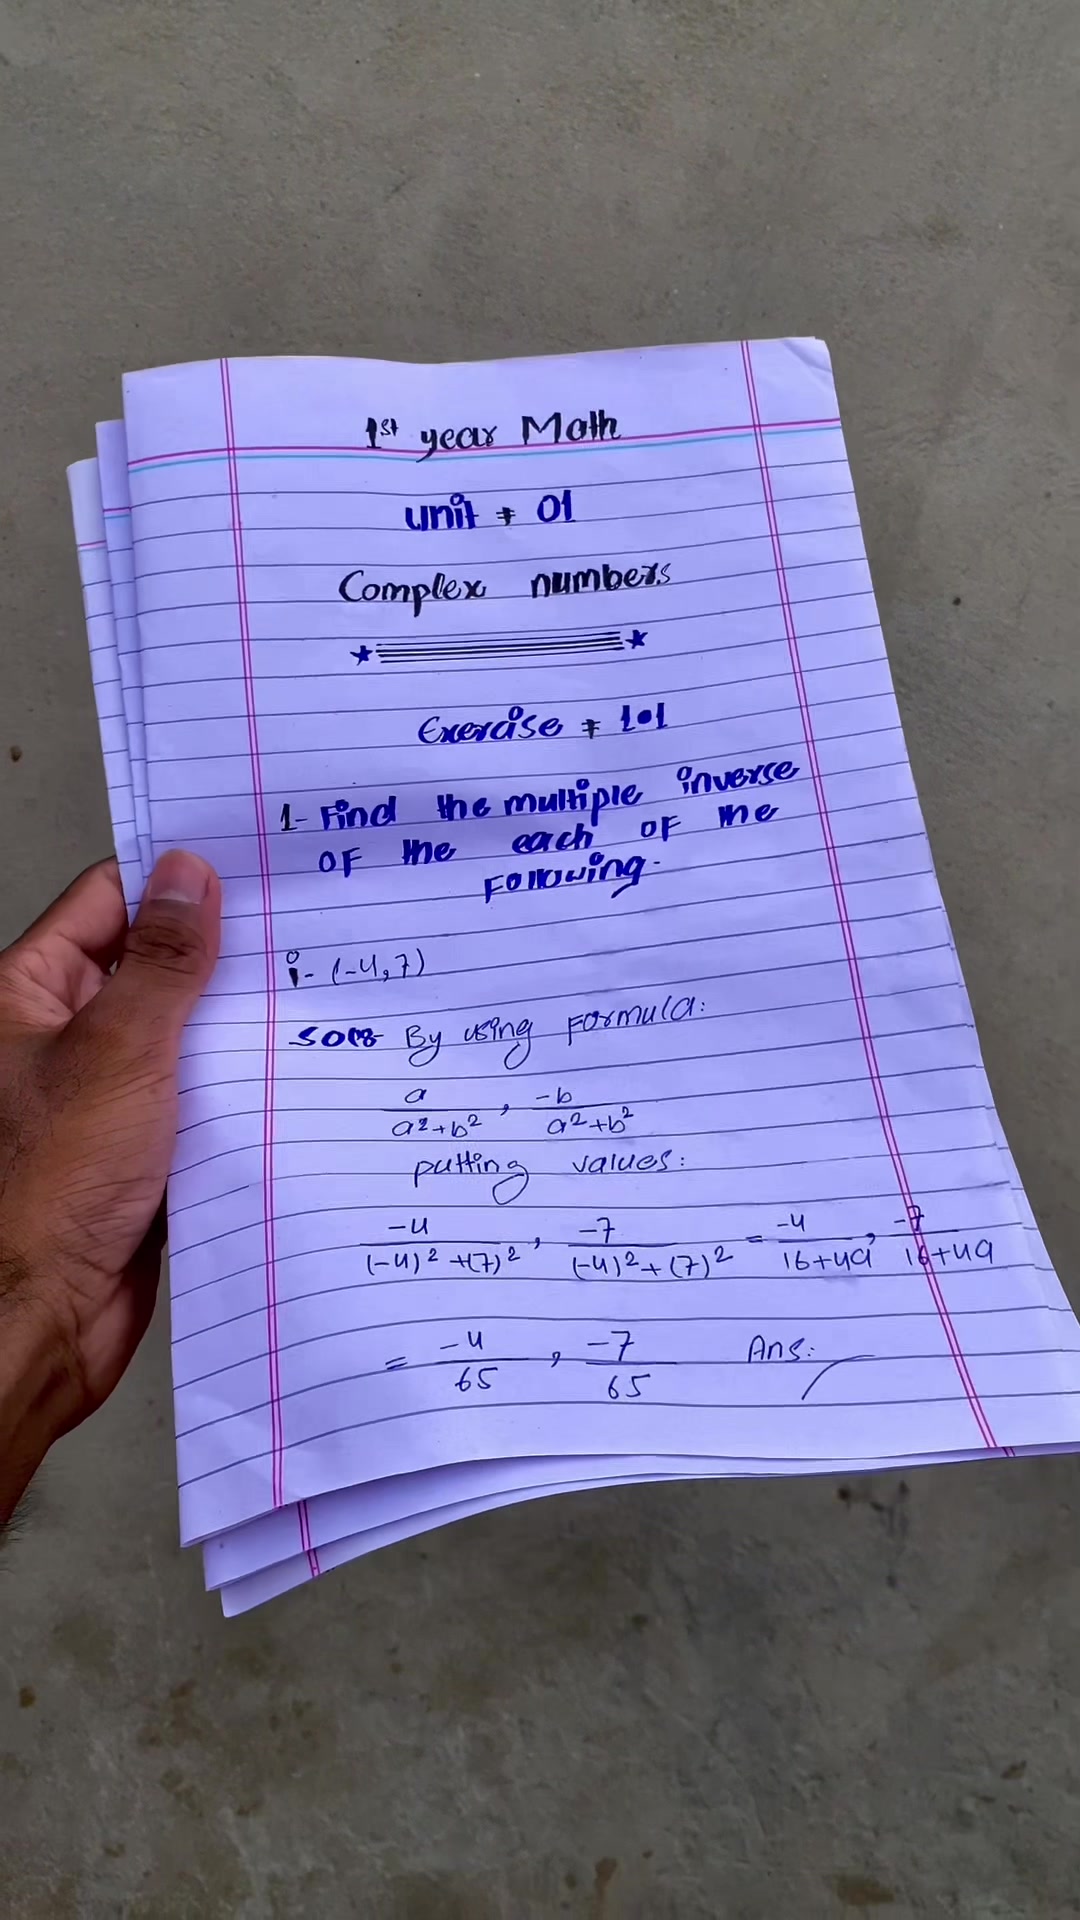 1st year Math
Unit # 01
Complex numbers
Exercise # 1.1
1- Find the multiple inverse
OF the each of the
Following.
i- (-4,7)
Sol:- By using Formula:
a/(a²+b²) , -b/(a²+b²)
putting values:
-4/((-4)²+(7)²) , -7/((-4)²+(7)²) = -4/(16+49) , -7/(16+49)
= -4/65 , -7/65 Ans: